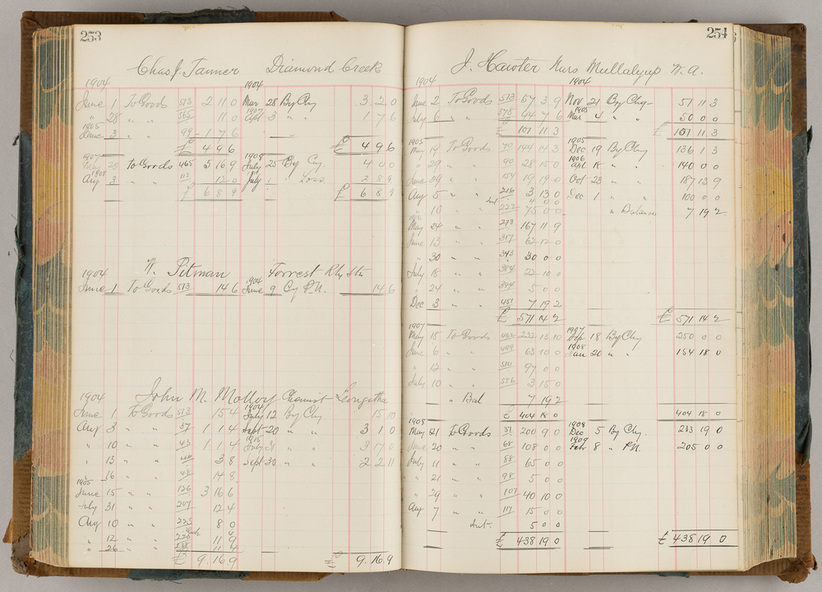 253
Chas J. Tanner Diamond Creek
1904 1904
June 1 To Goods 513 2 11 0 Mar 28 By Chq 3 2 0
" 28 " " 11 0 1907 Apl 3 " " 1 7 6
1905
June 3 " " 99 1 7 6
£ 4 9 6 £ 4 9 6
1907 1908
To Goods 465 5 16 9 July 25 By Cq 4 0 0
1908
Aug 3 " " 12 0 July 1 " Loss 2 8 9
£ 6 8 9 £ 6 8 9
W. Pitman Forrest Rly Stn
1904 1904
June 1 To Goods 513 14 6 June 9 By P.N. 14 6
John M. Molloy Chemist Leongatha
1904 1904
June 1 To Goods 513 15 4 July 12 By Chq 15 0
Aug 3 " " 37 1 1 4 Sept 20 " " 3 1 0
" 10 " " 43 1 1 4 1905 July 31 " " 3 17 0
" 13 " " 3 8 Sept 30 " " 2 2 11
" 16 " " 14 8
1905
June 15 " " 126 3 16 6
July 31 " " 207 12 4
Aug 10 " " 225 8 0
" 12 " " 11 9
" 26 " " 11 4
£ 9. 16. 9 £ 9. 16. 9
254
J. Hawter Nurs Mullalyup W. A.
1904 1904
June 2 To Goods 513 57 3 9 Nov 21 By Chq 51 11 3
July 6 " " 575 44 7 6 1905 Mar 4 " " 50 0 0
£ 101 11 3 £ 101 11 3
1905 1905
May 19 To Goods 79 144 14 3 Dec 19 By Chq 136 1 3
" 29 " " 90 28 15 0 1906 Apl 18 " " 140 0 0
June 29 " " 19 19 0 Oct 23 " " 187 13 9
Aug 5 " " 3 13 0 Dec 1 " " 100 0 0
" 10 " " 222 75 0 0 " Balance 7 19 2
May 24 " " 293 167 11 9
June 13 " " 317 62 12 0
" 30 " " 343 30 0 0
July 18 " " 22 10 0
" 24 " " 5 0 0
Dec 3 " " 451 7 19 2
£ 571 14 2 £ 571 14 2
1907 1907
May 15 To Goods Sep 18 By Chq 250 0 0
June 6 " " 499 63 10 0 1908 Jan 20 " " 154 18 0
" 12 " " 97 0 0
July 10 " " 576 3 15 0
" Bal 7 19 2
£ 404 18 0 404 18 0
1908 1908
May 21 To Goods 31 200 9 0 Dec 5 By Chq 233 19 0
June 20 " " 68 108 0 0 1909 Feb 8 " P.N. 205 0 0
July 11 " " 88 65 0 0
" 21 " " 98 5 0 0
" 29 " " 107 40 10 0
Aug 7 " " 117 15 0 0
Int 5 0 0
£ 438 19 0 £ 438 19 0